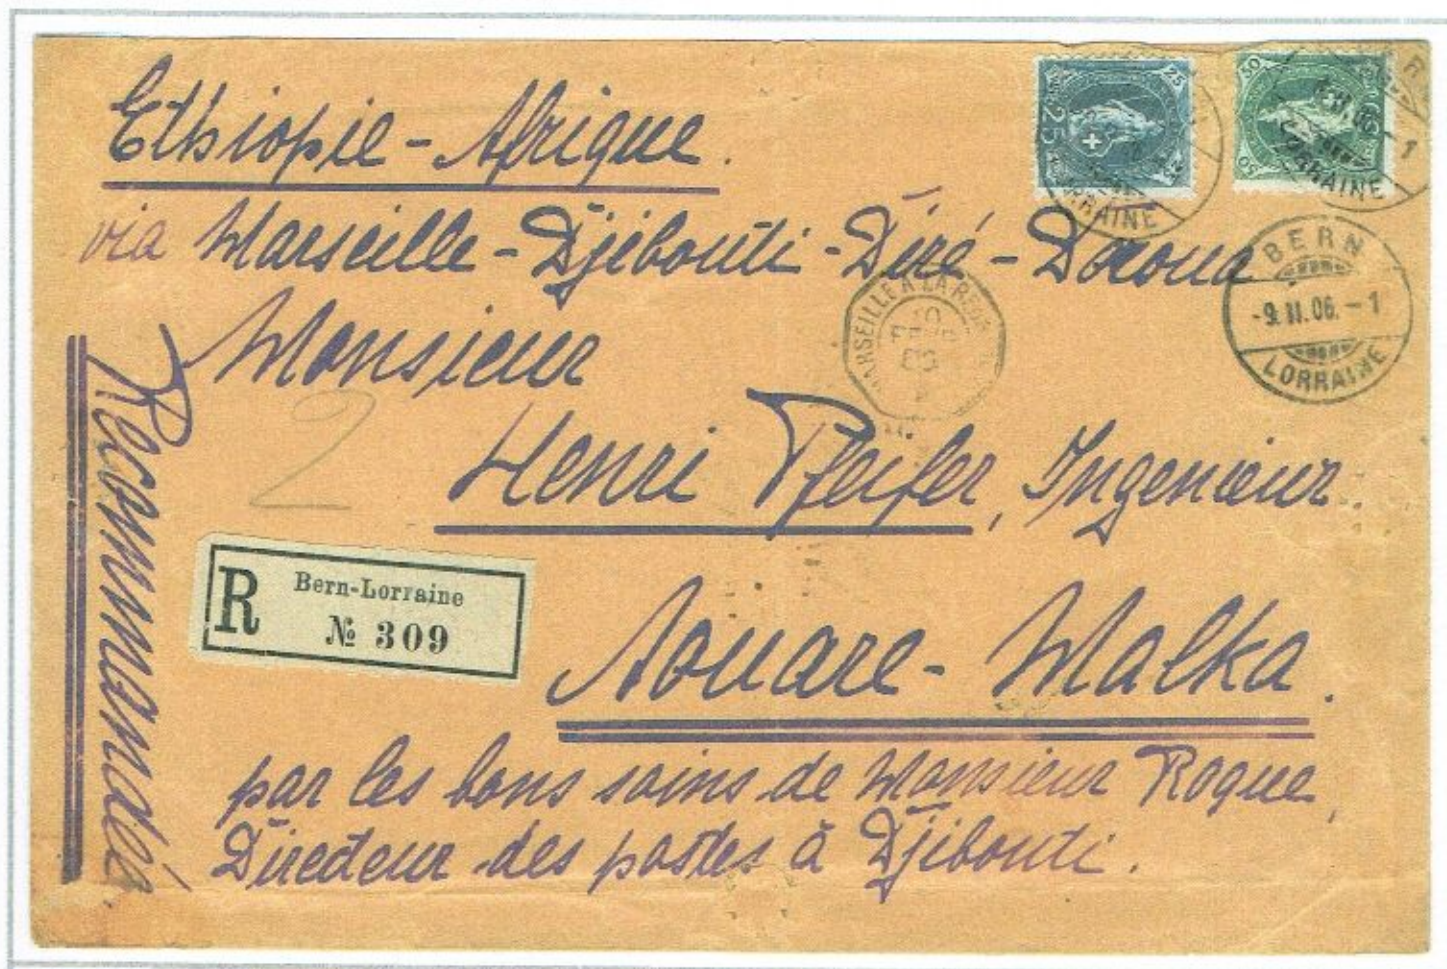 Ethiopie - Afrique.
via Marseille - Djibouti - Diré - Daoua
Monsieur
Henri Pfeifer, Ingenieur
Aouare - Malka.
par les bons soins de Monsieur Roque,
Directeur des postes à Djibouti.
Recommandée
R Bern-Lorraine
№ 309
25
25
50
50
LORRAINE
BERN
-9.II.06.-1
LORRAINE
MARSEILLE A LA REUNION
10
FEVR
06
2